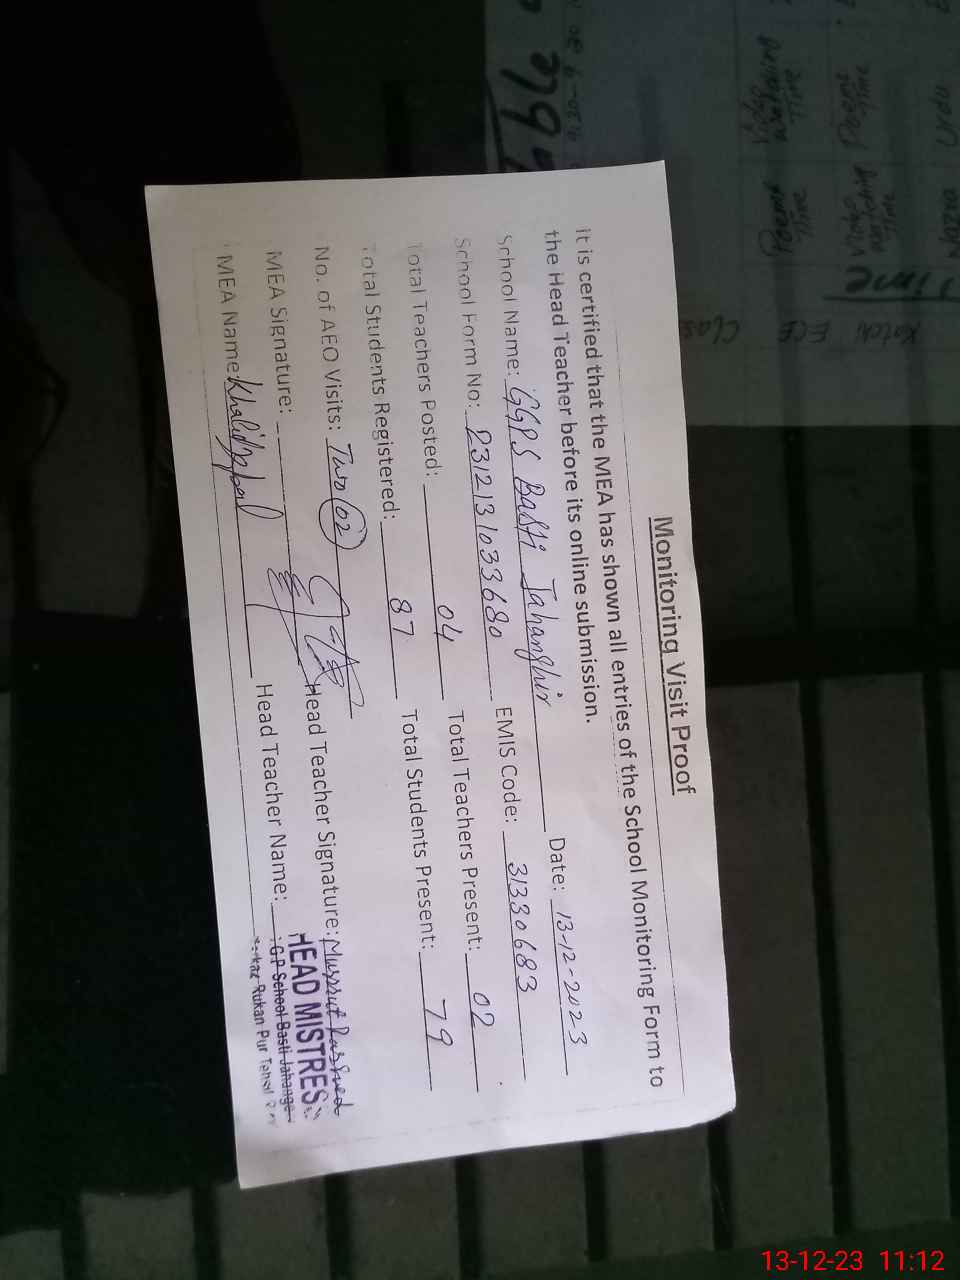 Monitoring Visit Proof
it is certified that the MEA has shown all entries of the School Monitoring Form to
the Head Teacher before its online submission.
School Name: GGPS Basti Jahanghir Date: 13-12-2023
School Form No: 2312131033680 EMIS Code: 31330683
Total Teachers Posted: 04 Total Teachers Present: 02
Total Students Registered: 87 Total Students Present: 79
No. of AEO Visits: Two 02
MEA Signature: Head Teacher Signature: Mussrut Rasheed
MEA Name: Khalid Iqbal Head Teacher Name:
HEAD MISTRESS
G.P School Basti Jahange
Rukan Pur
Time
Class
ECE
Katchi
13-12-23 11:12